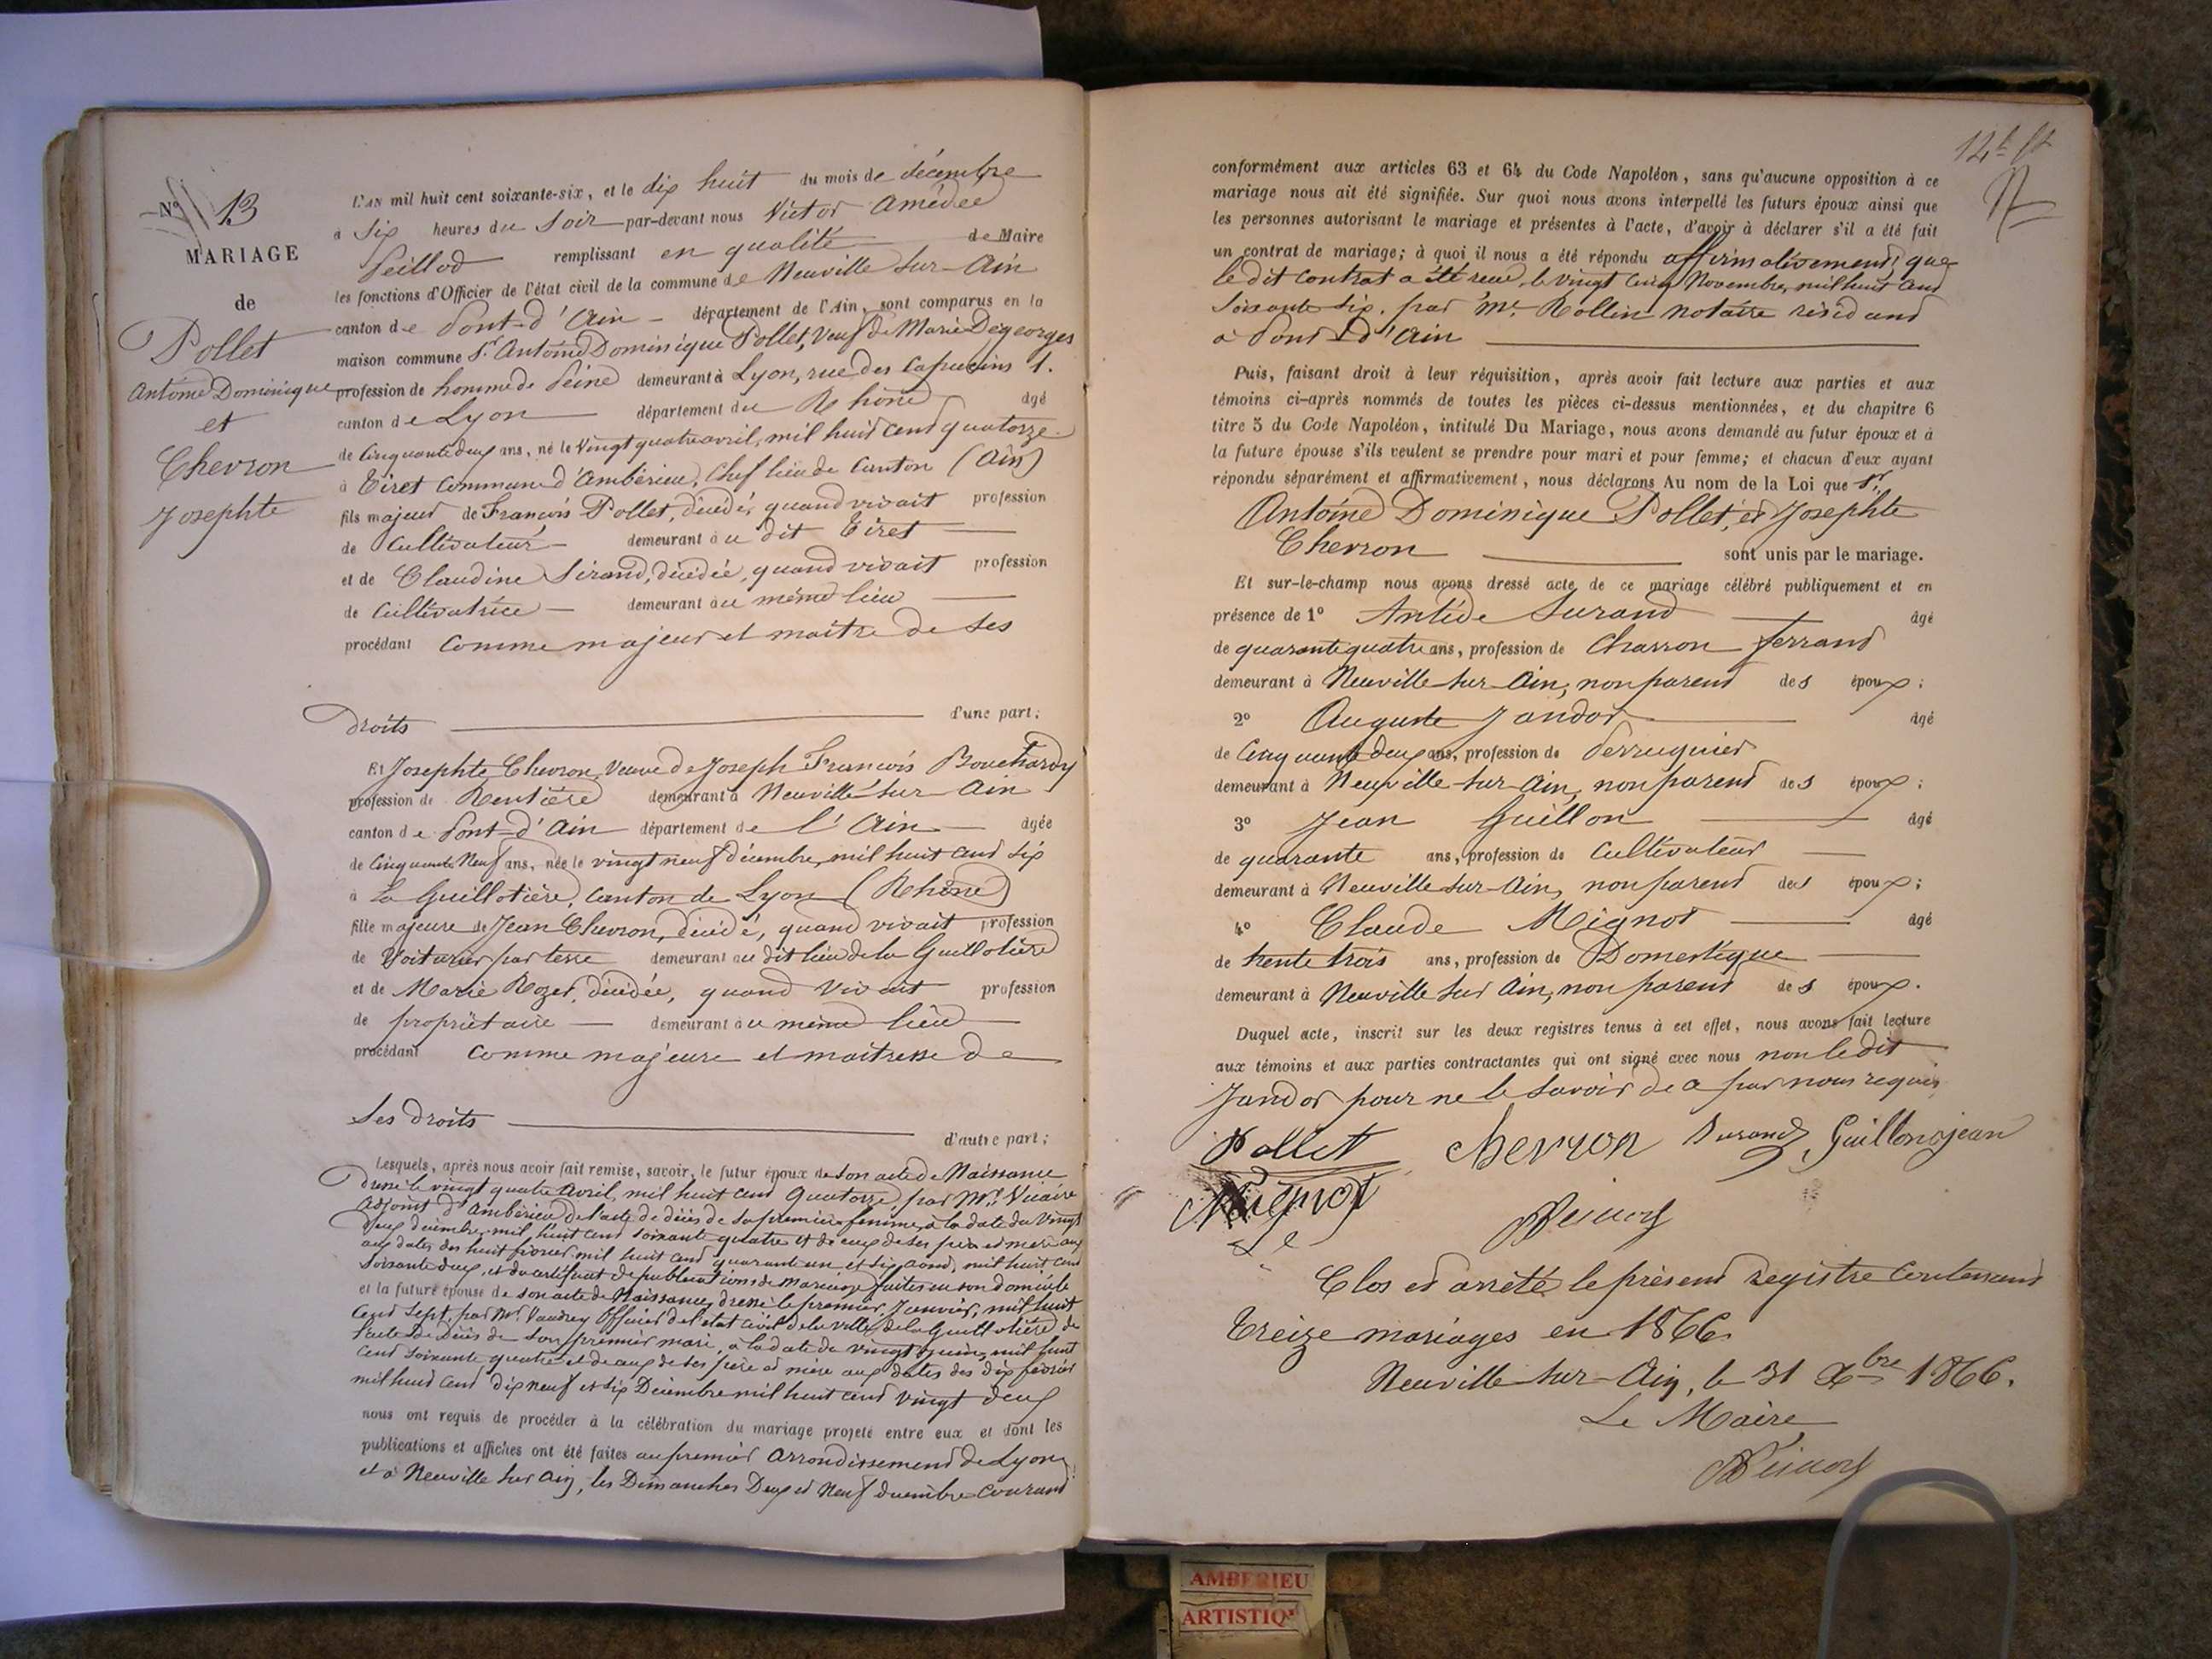 N° 13
MARIAGE
de
Pollet
Antoine Dominique
et
Chevron
Josephte
L'AN mil huit cent soixante-six, et le dix huit du mois de décembre
à Six heures du Soir par-devant nous Victor Amédée
Peillod remplissant en qualité de Maire
les fonctions d'Officier de l'état civil de la commune de Neuville sur-Ain
canton de Pont-d'Ain département de l'Ain, sont comparus en la
maison commune Sr. Antoine Dominique Pollet, Veuf de Marie Degeorges
profession de homme de Peine demeurant à Lyon, rue des Capucins 1.
canton de Lyon département du Rhône âgé
de Cinquante deux ans, né le Vingt quatre avril, mil huit cent quatorze
à Tiret Commune d'Ambérieu, Chef lieu de Canton (Ain)
fils majeur de François Pollet, décédé, quand vivait profession
de Cultivateur demeurant au dit Tiret
et de Claudine Sirand, décédée, quand vivait profession
de Cultivatrice demeurant au même lieu
procédant comme majeur et maitre de ses
droits d'une part;
Et Josephte Chevron, Veuve de Joseph François Bouchardy
profession de Rentière demeurant à Neuville sur Ain
canton de Pont-d'Ain département de l'Ain âgée
de Cinquante Neuf ans, née le vingt neuf décembre, mil huit cent six
à La Guillotière, Canton de Lyon (Rhône)
fille majeure de Jean Chevron, décédé, quand vivait profession
de Voiturier par terre demeurant au dit lieu de la Guillotière
et de Marie Rozet, décédée, quand vivait profession
de propriétaire demeurant au même lieu
procédant comme majeure et maitresse de
Ses droits d'autre part;
Lesquels, après nous avoir fait remise, savoir, le futur époux de son acte de Naissance
Dressé le vingt quatre Avril, mil huit cent Quatorze, par Mr. Vicaire
Adjoint d'Ambérieu, de l'acte de décès de sa première femme, à la date du Vingt
deux décembre mil huit cent soixante quatre et de ceux de ses père et mère aux
aux dates des huit février mil huit cent quarante un et six août mil huit cent
soixante deux, et du certificat de publications de mariage faites en son domicile
et la future épouse de son acte de Naissance, dressé le premier Janvier, mil huit
Cent Sept, par Mr. Vaudrey Officier de l'état civil de la ville de la Guillotière, de
l'acte de Décès de son premier mari, à la date du vingt juin, mil huit
cent soixante quatre et de ceux de ses père et mère aux dates des dix février
mil huit cent dix neuf et six Décembre mil huit cent vingt deux
nous ont requis de procéder à la célébration du mariage projeté entre eux et dont les
publications et affiches ont été faites au premier Arrondissement de Lyon
et à Neuville sur Ain, les Dimanches Deux et Neuf décembre courant
conformément aux articles 63 et 64 du Code Napoléon, sans qu'aucune opposition à ce
mariage nous ait été signifiée. Sur quoi nous avons interpellé les futurs époux ainsi que
les personnes autorisant le mariage et présentes à l'acte, d'avoir à déclarer s'il a été fait
un contrat de mariage; à quoi il nous a été répondu affirmativement, que
le dit Contrat a été reçu, le vingt cinq Novembre, mil huit cent
Soixante Six, par Me. Rollin notaire résidant
à Pont d'Ain
Puis, faisant droit à leur réquisition, après avoir fait lecture aux parties et aux
témoins ci-après nommés de toutes les pièces ci-dessus mentionnées, et du chapitre 6
titre 5 du Code Napoléon, intitulé Du Mariage, nous avons demandé au futur époux et à
la future épouse s'ils veulent se prendre pour mari et pour femme; et chacun d'eux ayant
répondu séparément et affirmativement, nous déclarons Au nom de la Loi que Sr.
Antoine Dominique Pollet, et Josephte
Chevron sont unis par le mariage.
Et sur-le-champ nous avons dressé acte de ce mariage célébré publiquement et en
présence de 1° Antide Durand âgé
de quarante quatre ans, profession de Charron ferrand
demeurant à Neuville sur Ain, non parent des époux;
2° Auguste Jandor âgé
de Cinquante deux ans, profession de Perruquier
demeurant à Neuville sur Ain, non parent des époux;
3° Jean Guillon âgé
de quarante ans, profession de Cultivateur
demeurant à Neuville sur Ain, non parent des époux;
4° Claude Mignot âgé
de trente trois ans, profession de Domestique
demeurant à Neuville sur Ain, non parent des époux.
Duquel acte, inscrit sur les deux registres tenus à cet effet, nous avons fait lecture
aux témoins et aux parties contractantes qui ont signé avec nous non le dit
Jandor pour ne le savoir de ce par nous requis
Pollet Chevron Durand Guillon jean
Mignot
Clos et arrêté le présent registre contenant
Treize mariages en 1866.
Neuville sur-Ain, le 31 Xbre 1866.
Le Maire
AMBERIEU
ARTISTIQ